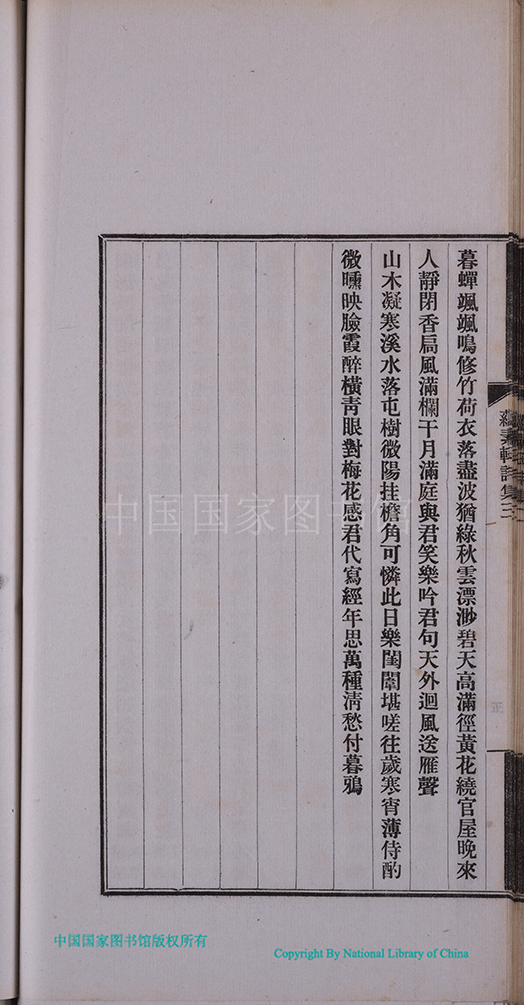 暮蟬颯颯鳴修竹荷衣落盡波猶綠秋雲漂渺碧天高滿徑黃花繞官屋晚來
人靜閉香扃風滿欄干月滿庭與君笑樂吟君句天外迴風送雁聲
山木凝寒溪水落屯樹微陽挂檐角可憐此日樂閨闈堪嗟往歲寒宵薄侍酌
微曛映臉霞醉橫青眼對梅花感君代寫經年思萬種清愁付暮鴉
中国国家图书馆
中国国家图书馆版权所有
Copyright By National Library of China